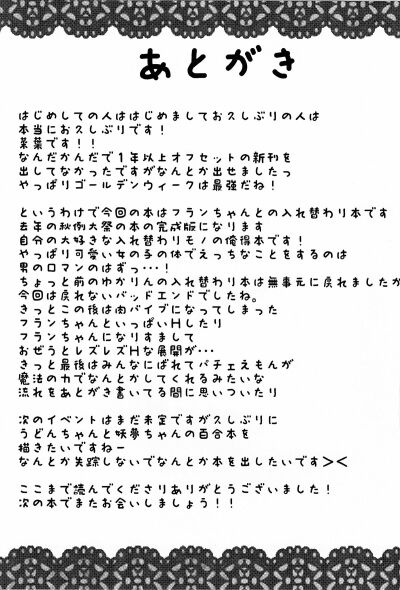 あとがき
はじめしての人ははじめましてお久しぶりの人は
本当にお久しぶりです！
茶葉です！！
なんだかんだで１年以上オフセットの新刊を
出してなかったですがなんとか出せましたっ
やっぱりゴールデンウィークは最強だね！
というわけで今回の本はフランちゃんとの入れ替わり本です
去年の秋例大祭の本の完成版になります
自分の大好きな入れ替わりモノの俺得本です！
やっぱり可愛い女の子の体でえっちなことをするのは
男のロマンのはずっ…！
ちょっと前のゆかりんの入れ替わり本は無事元に戻れましたが
今回は戻れないバッドエンドでしたね。
きっとこの後は肉バイブになってしまった
フランちゃんといっぱいHしたり
フランちゃんになりすまして
おぜうとレズレズHな展開が…
きっと最後はみんなにばれてパチェえもんが
魔法の力でなんとかしてくれるみたいな
流れをあとがき書いてる間に思いついたり
次のイベントはまだ未定ですが久しぶりに
うどんちゃんと妖夢ちゃんの百合本を
描きたいですねー
なんとか失踪しないでなんとか本を出したいです＞＜
ここまで読んでくださりありがとうございました！
次の本でまたお会いしましょう！！